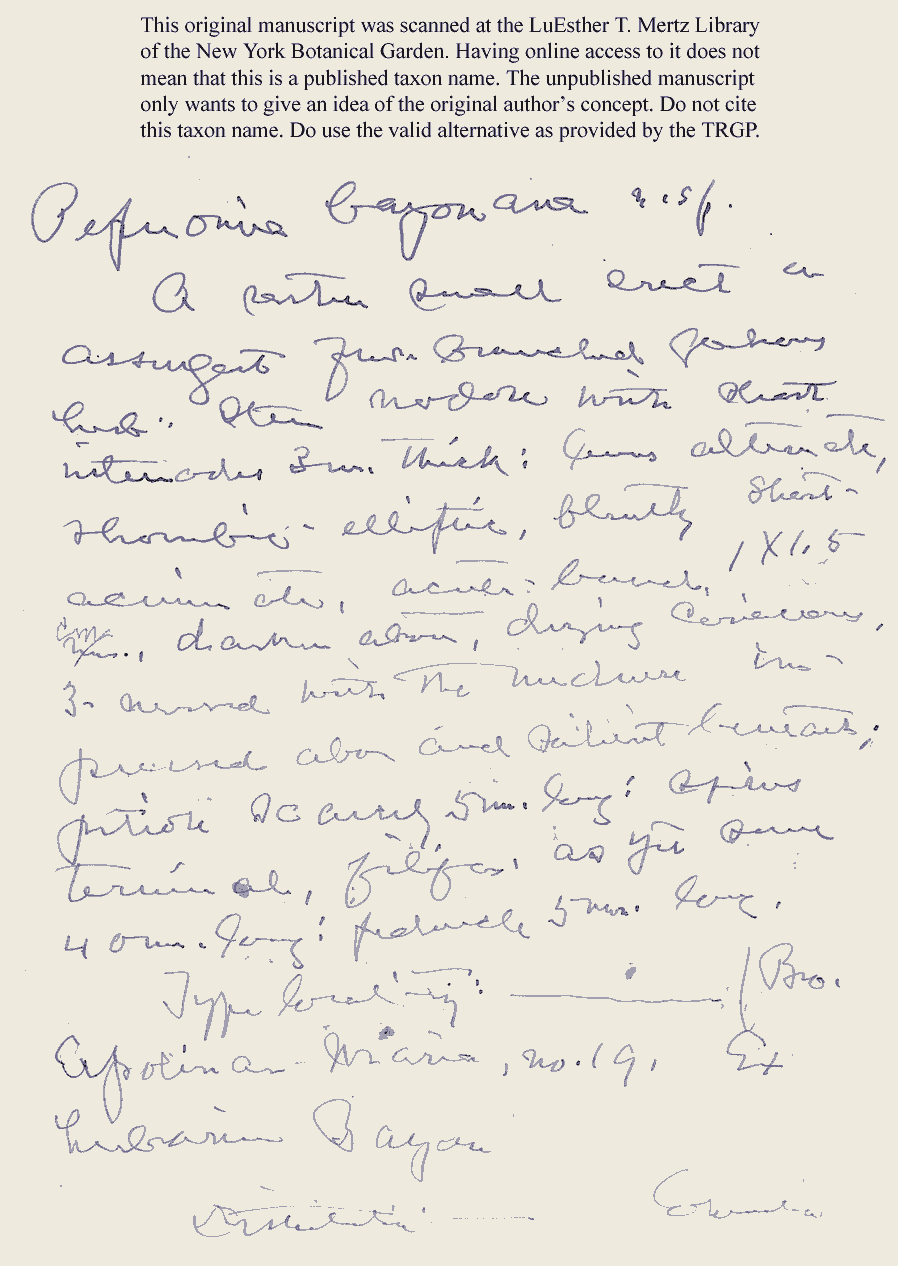 This original manuscript was scanned at the LuEsther T. Mertz Library
of the New York Botanical Garden. Having online access to it does not
mean that this is a published taxon name. The unpublished manuscript
only wants to give an idea of the original author's concept. Do not cite
this taxon name. Do use the valid alternative as provided by the TRGP.
Peperomia bayonana n. sp.
A rather small erect or
assurgent few-branched glabrous
herb: Stem nodose with short
internodes 3 mm. thick: leaves alternate,
rhombic-elliptic, bluntly short-
acuminate, acute-based, 1 X 1.5
cm., above, drying coriaceous,
3-nerved with the midnerve im-
pressed above and salient beneath;
petiole scarcely 5 mm. long: spikes
terminal, filiform as yet some
40 mm. long: peduncle 5 mm. long.
Type locality: (Bro.
Apolinar-Maria, no. 19. Ex
herbarium Bayon
Distribution: Colombia.